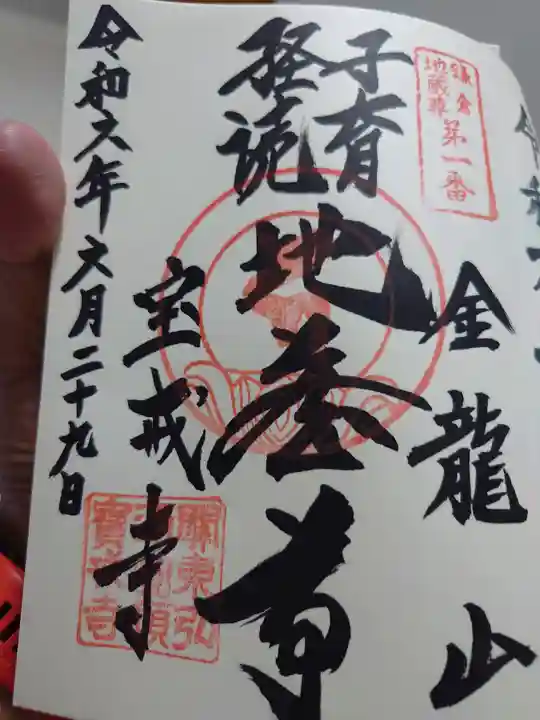 鎌倉
地蔵尊
第一番
金龍山
子育
経読
地蔵尊
宝戒寺
令和六年六月二十九日